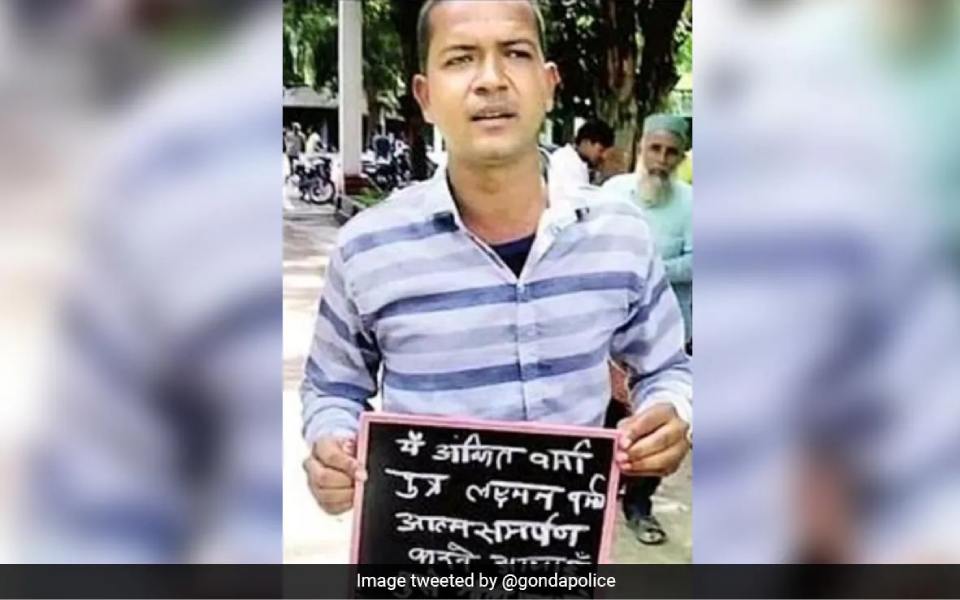 मैं अंकित वर्मा
पुत्र लक्ष्मन वर्मा
आत्मसमर्पण
करने आया हूँ
Image tweeted by @gondapolice